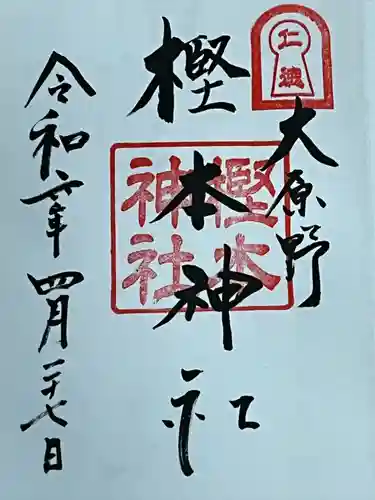 仁徳
大原野
樫本神社
樫本
神社
令和六年四月二十七日